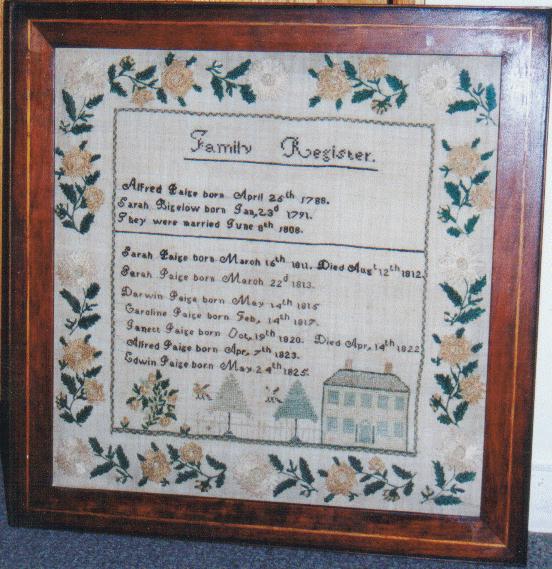 Family Register.
Alfred Paige born April 26th 1788.
Sarah Bigelow born Jan, 23d 1791.
They were married June 8th 1808.
Sarah Paige born March 16th 1811. Died Augt 12th 1812.
Sarah Paige born March 22d 1813.
Darwin Paige born May 14th 1815
Caroline Paige born Feb, 14th 1817.
Janett Paige born Oct, 19th 1820. Died Apr, 14th 1822
Alfred Paige born Apr, 7th 1823.
Edwin Paige born May 24th 1825.